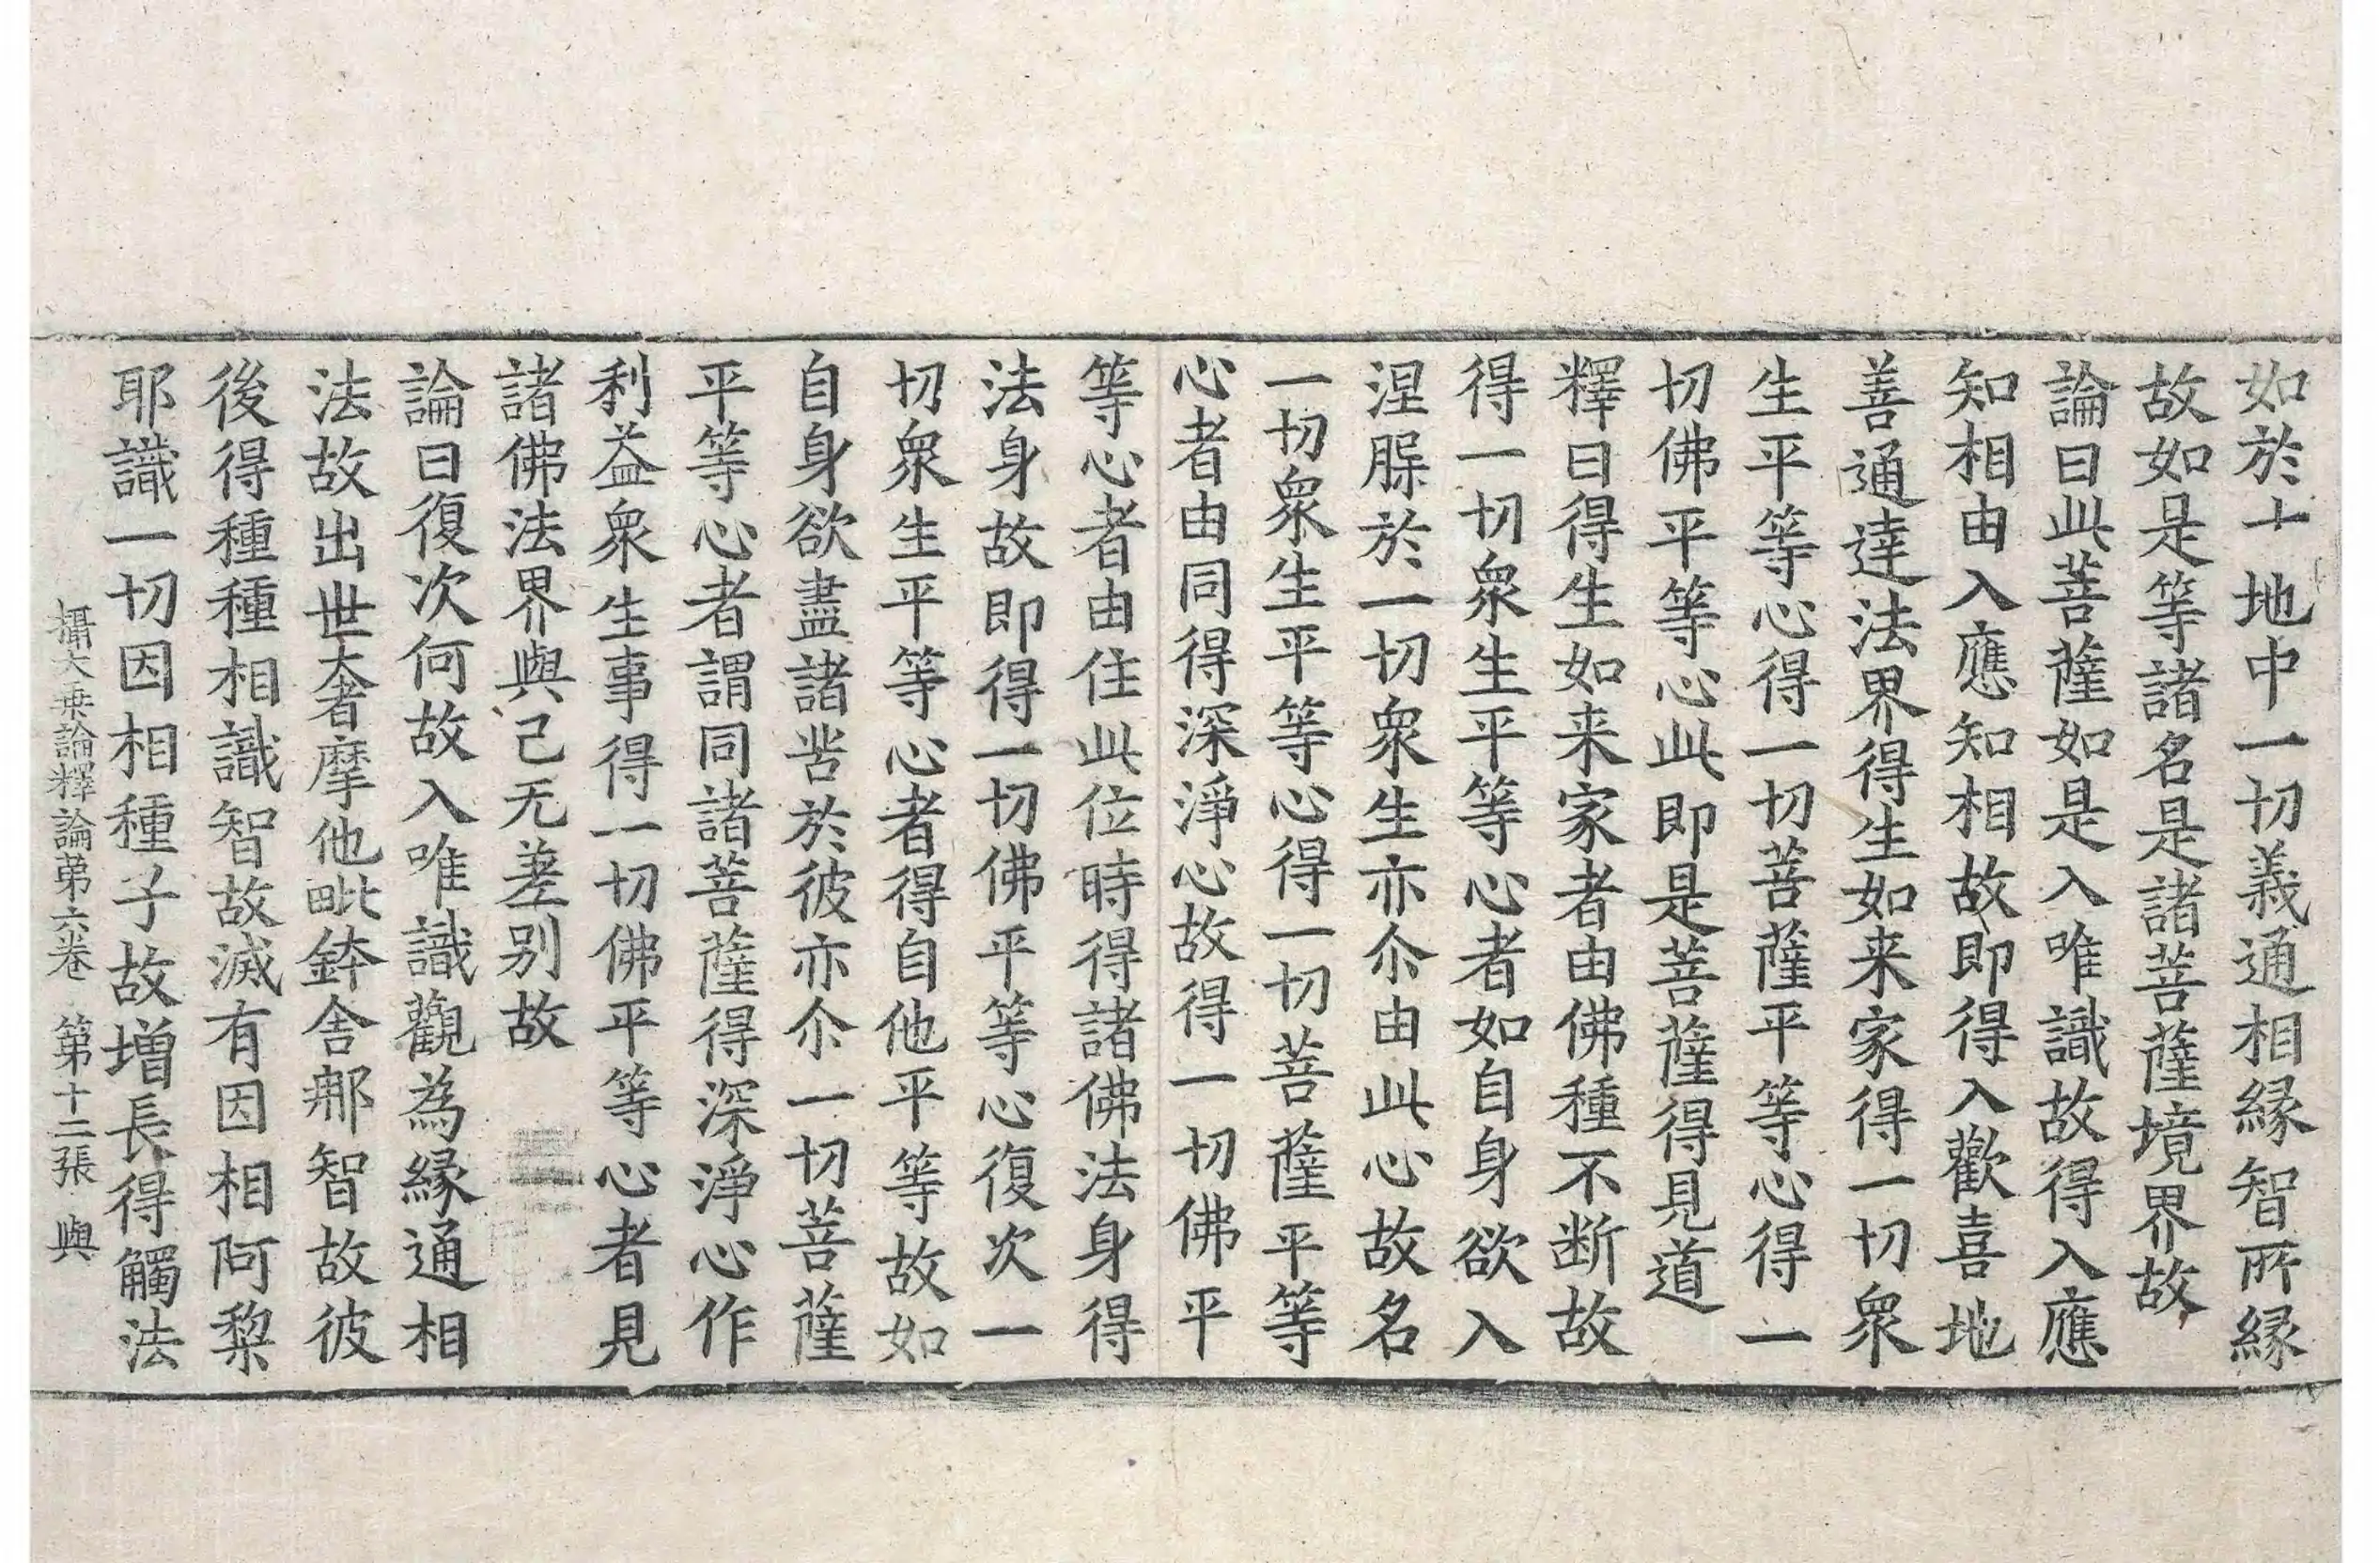 如於十地中一切義通相緣智所緣
故如是等諸名是諸菩薩境界故
論曰此菩薩如是入唯識故得入應
知相由入應知相故即得入歡喜地
善通達法界得生如来家得一切衆
生平等心得一切菩薩平等心得一
切佛平等心此即是菩薩得見道
釋曰得生如来家者由佛種不断故
得一切衆生平等心者如自身欲入
涅槃於一切衆生亦尒由此心故名
一切衆生平等心得一切菩薩平等
心者由同得深淨心故得一切佛平
等心者由住此位時得諸佛法身得
法身故即得一切佛平等心復次一
切衆生平等心者得自他平等故如
自身欲盡諸苦於彼亦尒一切菩薩
平等心者謂同諸菩薩得深淨心作
利益衆生事得一切佛平等心者見
諸佛法界與己无差别故
論曰復次何故入唯識觀為緣通相
法故出世奢摩他毗鉢舍那智故彼
後得種種相識智故滅有因相阿棃
耶識一切因相種子故增長得觸法
攝大乗論釋論第六卷 第十二張 與